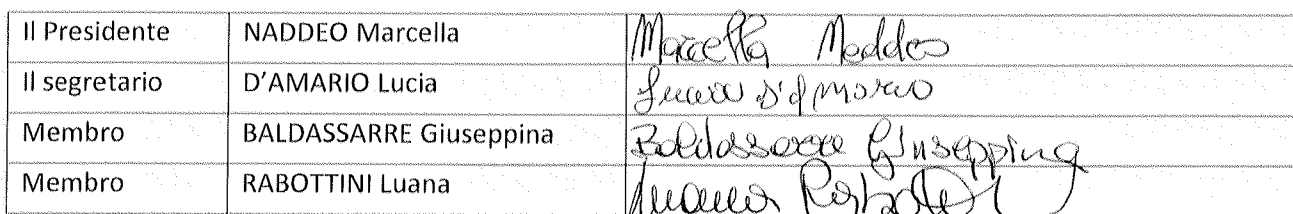 Il Presidente NADDEO Marcella Marcella Naddeo
Il segretario D'AMARIO Lucia Lucia D'Amario
Membro BALDASSARRE Giuseppina Baldassarre Giuseppina
Membro RABOTTINI Luana Luana Rabottini